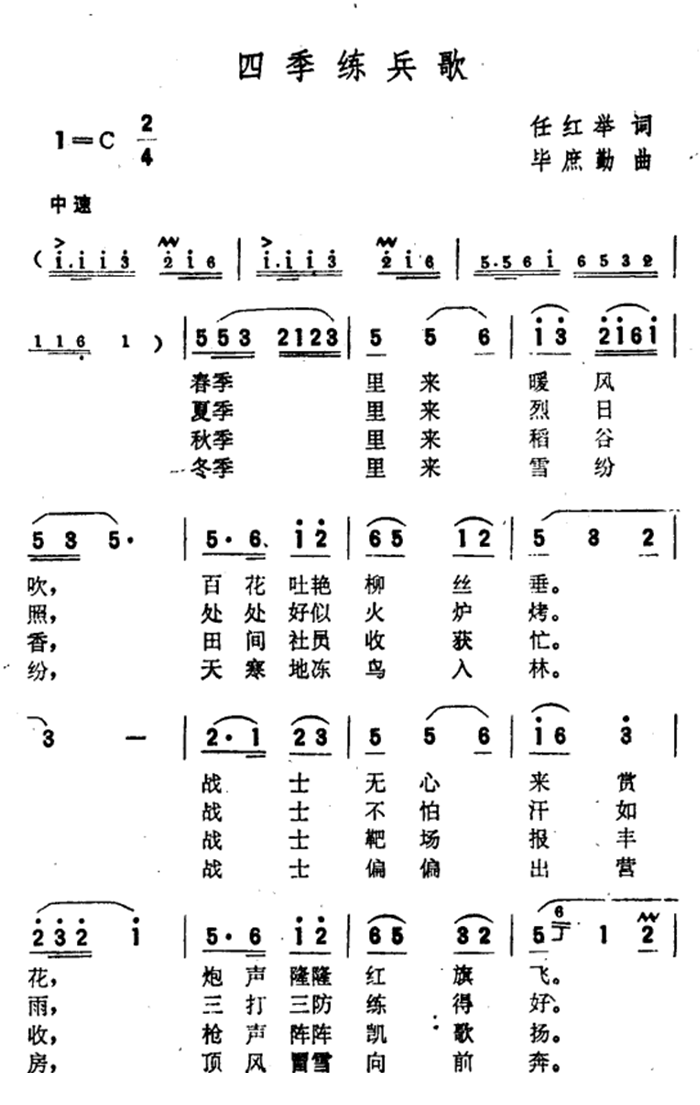 四季练兵歌
1=C 2/4
任红举 词
毕庶勤 曲
中速
( i·i i 3 2 i 6 | i·i i 3 2 i 6 | 5·5 6 i 6 5 3 2 |
1 1 6 1 ) | 5 5 3 2 1 2 3 | 5 5 6 | i 3 2 i 6 i |
春季 里 来 暖 风
夏季 里 来 烈 日
秋季 里 来 稻 谷
冬季 里 来 雪 纷
5 3 5· | 5· 6 i 2 | 6 5 1 2 | 5 3 2 |
吹, 百 花 吐艳 柳 丝 垂。
照, 处 处 好似 火 炉 烤。
香, 田 间 社员 收 获 忙。
纷, 天 寒 地冻 鸟 入 林。
3 — | 2· 1 2 3 | 5 5 6 | i 6 3 |
战 士 无 心 来 赏
战 士 不 怕 汗 如
战 士 靶 场 报 丰
战 士 偏 偏 出 营
2 3 2 i | 5· 6 i 2 | 6 5 3 2 | 6 5 1 2 |
花, 炮 声 隆隆 红 旗 飞。
雨, 三 打 三防 练 得 好。
收, 枪 声 阵阵 凯 歌 扬。
房, 顶 风 冒雪 向 前 奔。